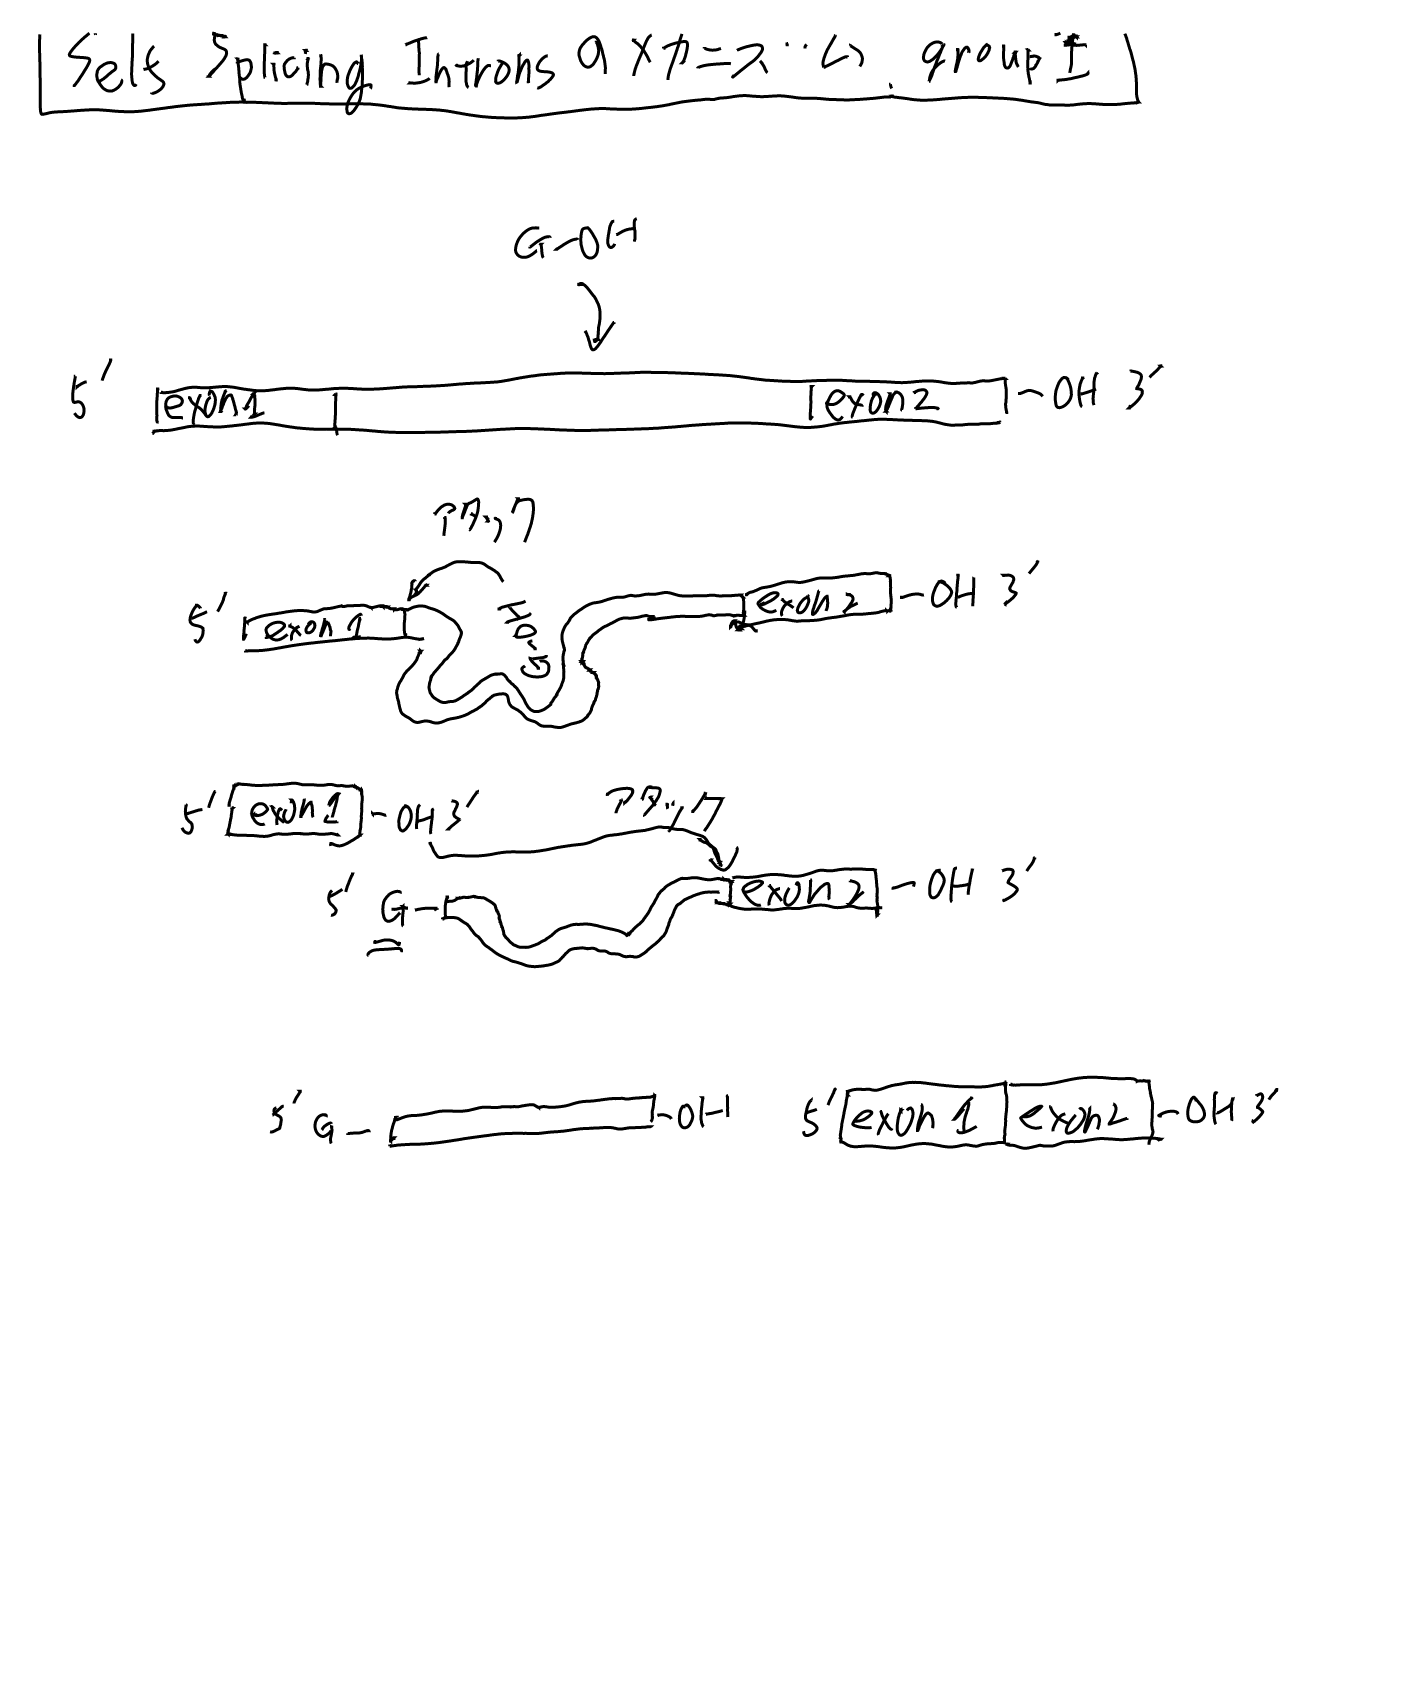 Self Splicing Introns のメカニズム. group I
G-OH
5' exon1 exon2 -OH 3'
アタック
5' exon 1 HO-G exon 2 -OH 3'
5' exon 1 -OH 3' アタック
5' G- exon 2 -OH 3'
5' G- -OH 5' exon 1 exon2 -OH 3'